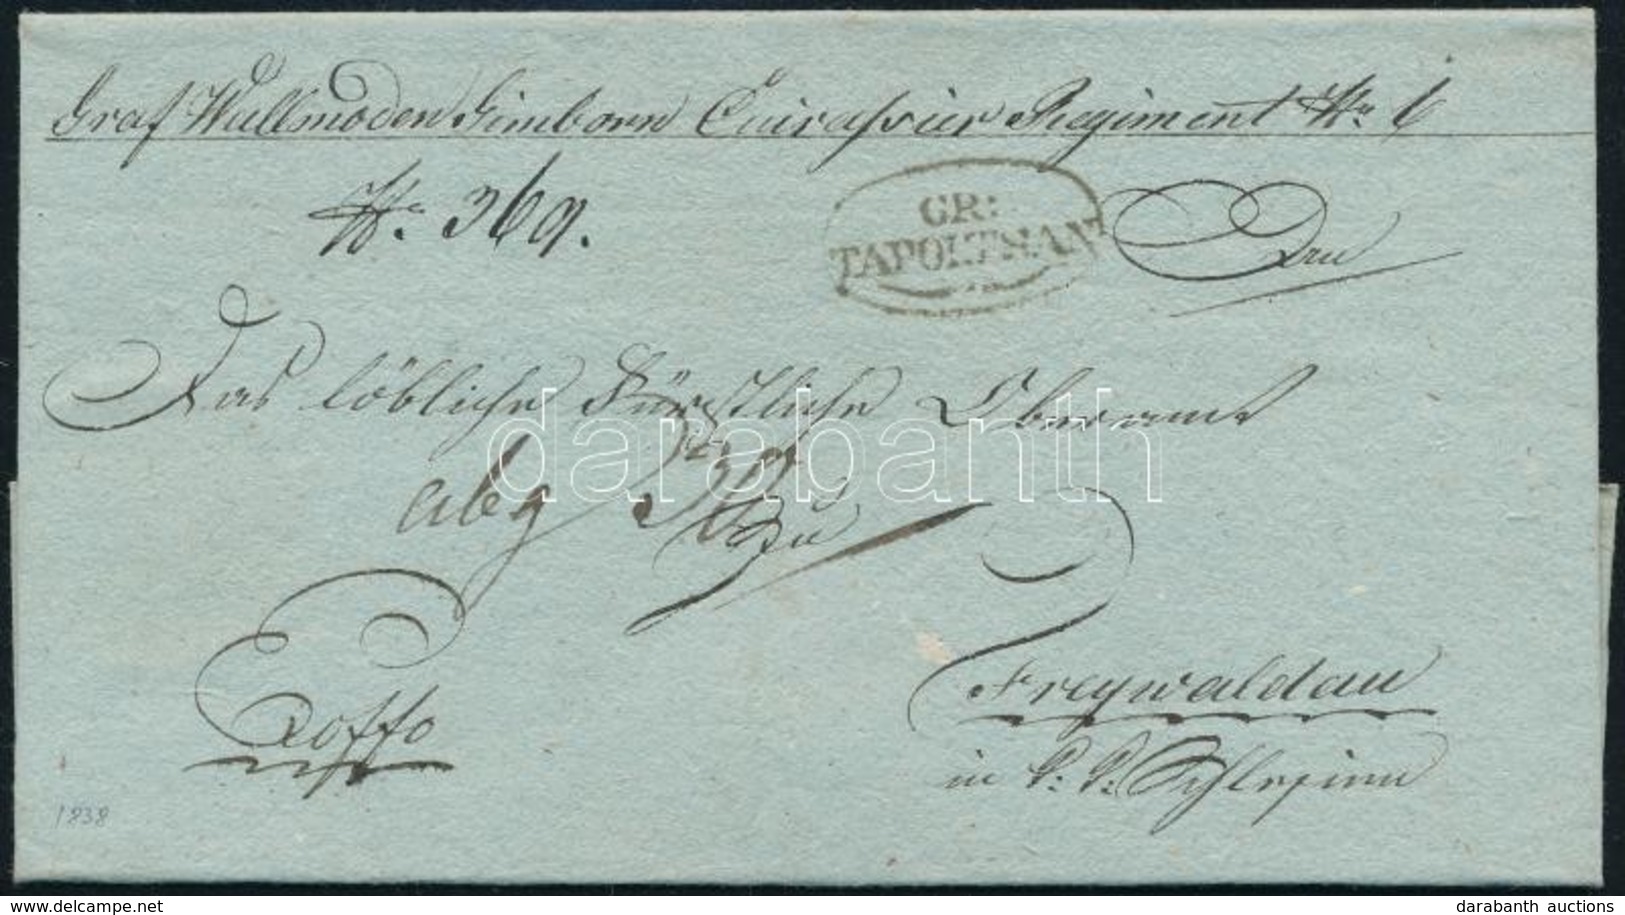 Graf Wallmoden Gimborn Cuirassier Regiment No 6
No. 369.
GR:
TAPOLTSAN
An
Das löbliche Fürstliche Oberamt
abg
zu
Freywaldau
in k: k: Schlesien
Exoffo
1838
darabanth
www.delcampe.net
darabanth auctions